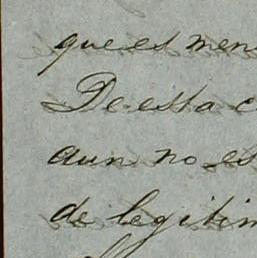 que es men
De esta c
aun no es
de legitim